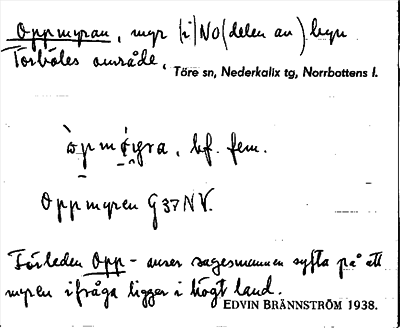 Oppmyran, myr (i) NO (delen av) byn
Torböles område.
Töre sn, Nederkalix tg, Norrbottens l.
bf. fem.
Oppmyren G 37 NV.
Förleden Opp- anser sagesmannen syfta på att
myren ifråga ligger i högt land.
EDVIN BRÄNNSTRÖM 1938.